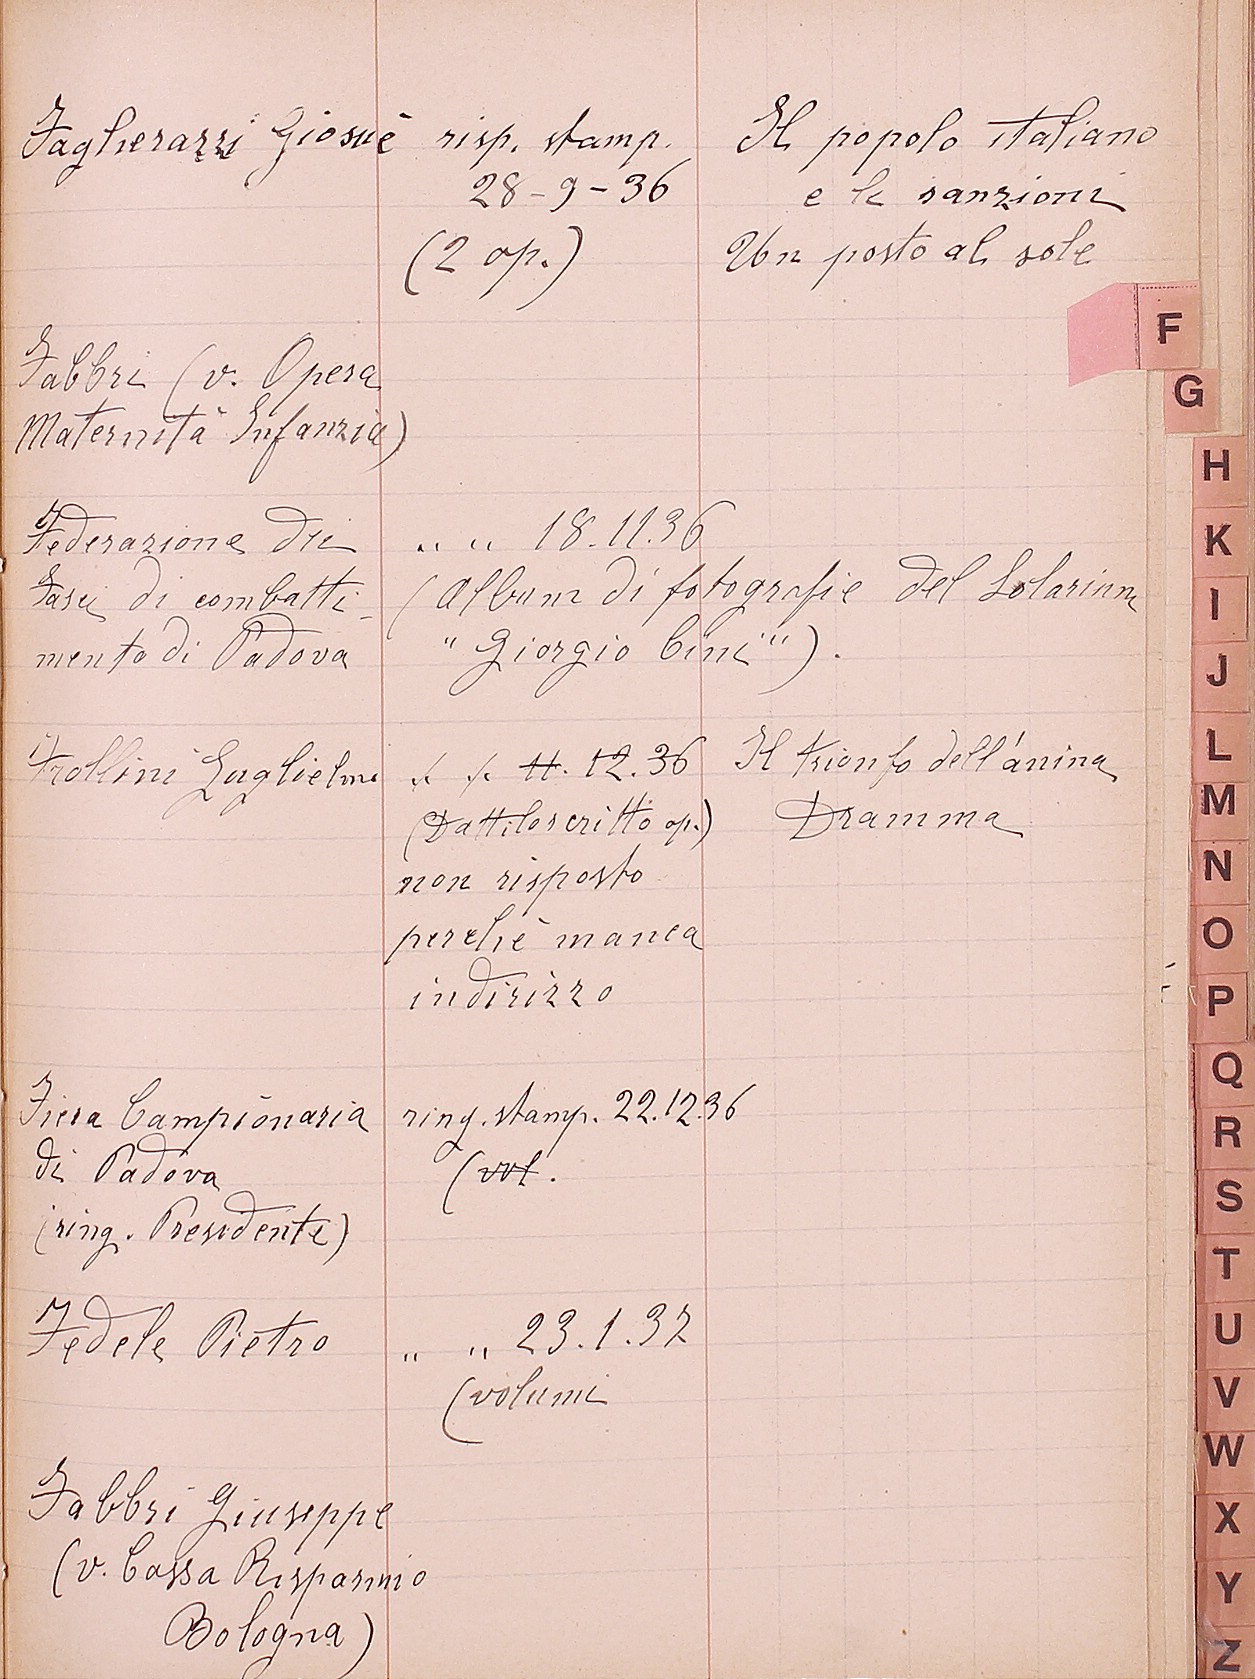 Fagherazzi Giosuè risp. stamp. Il popolo italiano
28-9-36 e le sanzioni
(2 op.) Un posto al sole
Fabbri (v. Opera
Maternità Infanzia)
Federazione dei „ „ 18.11.36
Fasci di combatti- (Album di fotografie del Solarium
mento di Padova "Giorgio Cini").
Frollini Guglielmo „ „ 11. 12.36 Il trionfo dell'anima
(Dattiloscritto op.) Dramma
non risposto
perchè manca
indirizzo
Fiera Campionaria ring. stamp. 22.12.36
di Padova (vol.
(ring. Presidente)
Fedele Pietro „ „ 23.1.37
(volumi
Fabbri Giuseppe
(v. Cassa Risparmio
Bologna)
F
G
H
K
I
J
L
M
N
O
P
Q
R
S
T
U
V
W
X
Y
Z